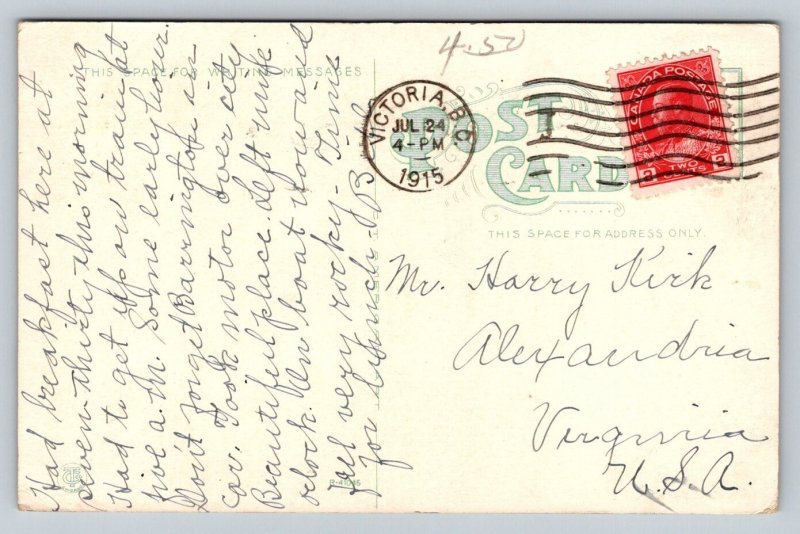 4.50
THIS SPACE FOR WRITING MESSAGES
Had breakfast here at
seven-thirty this morning
Had to get off our train at
five a.m. Some early hour.
Don't forget Barrington in
car. Took motor over city
Beautiful place. Left wife
oclock. On boat now and
feel very rocky- Time
for lunch. B.
VICTORIA, B.C.
JUL 24
4-PM
1915
POST
CARD
CANADA POSTAGE
2 TWO 2
CENTS
THIS SPACE FOR ADDRESS ONLY.
Mr. Harry Kirk
Alexandria
Virginia
U.S.A.
R-41046